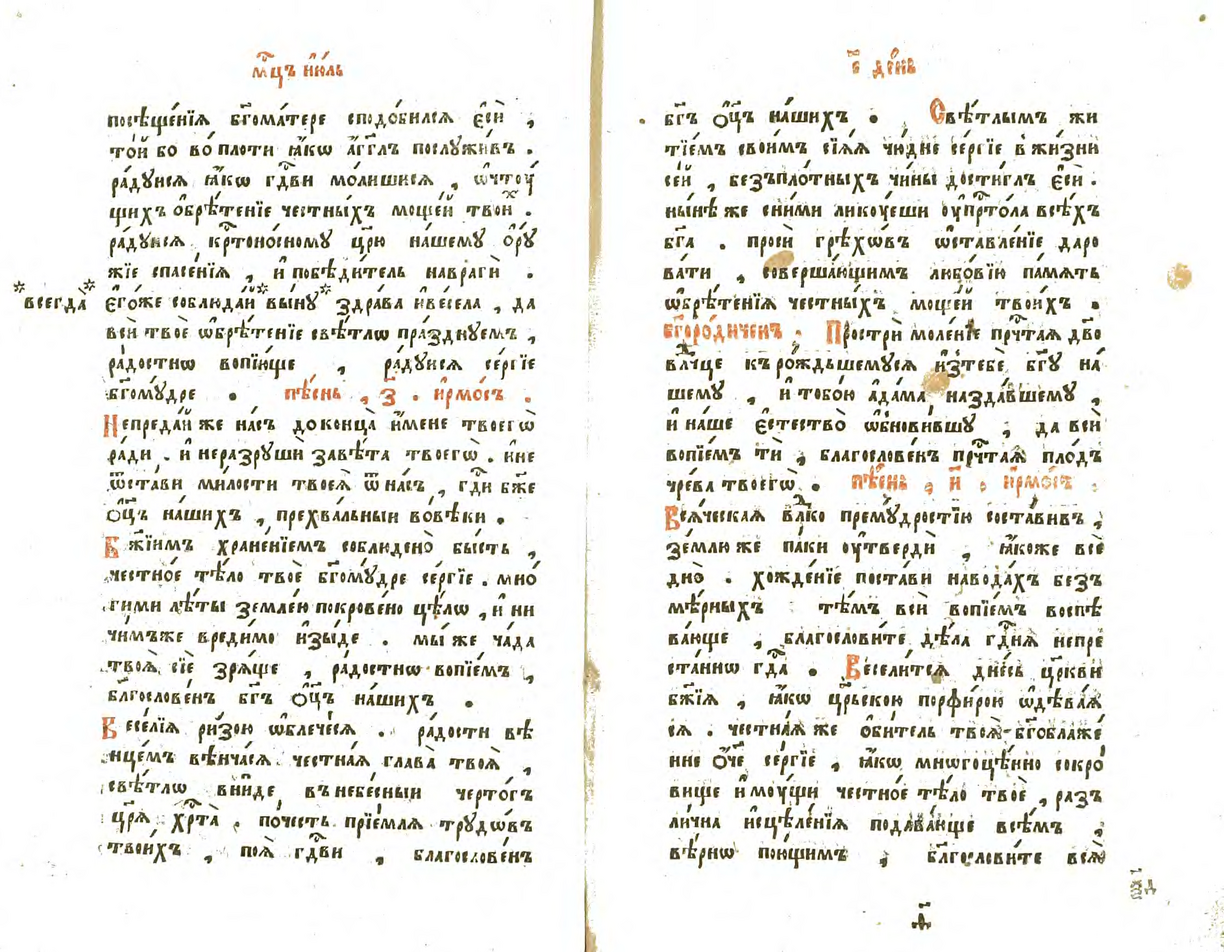 мⷭ҇цъ и҆ю́ль
посѣще́нїѧ бг҃ома́тере сподо́билсѧ є҆сѝ ,
то́й бо во пло́ти ꙗ҆́кѡ а҆́гг҃лъ послꙋжи́въ .
ра́дꙋисѧ ꙗ҆́кѡ гдⷭ҇ви мо́лишисѧ , ѡ҆ чтоу́
щихъ ѻ҆брѣ́тенїе че́стны́хъ моще́й твои́ⷯ .
ра́дꙋисѧ кр҃тоно́сномꙋ цр҃ю на́шемꙋ ѻ҆рꙋ́
жїе спасе́нїѧ , и҆ побѣди́тель наврагѝ .
*всегда̀* є҆го́же соблюда́й* вы́нꙋ* здра́ва и҆ве́села , да
всѝ твоѐ ѡ҆брѣ́тенїе свѣ́тлѡ пра́зднꙋемъ ,
ра́достнѡ вопїю́ще , ра́дꙋисѧ се́ргїе
бг҃омꙋ́дре . пѣ́снь , з҃ . и҆рмо́съ .
Непреда́й же на́съ доконца̀ и҆́мене твоегѡ̀
ра́ди . и҆ неразрꙋшѝ завѣ́та твоегѡ̀ . и҆не
ѿста́ви ми́лости твоеѧ̀ ѿ на́съ , гдⷭ҇и бж҃е
ѻ҆ц҃ъ на́шихъ , прехва́льныи во вѣ́ки .
Бж҃їимъ хране́нїемъ соблюдено̀ бы́сть ,
честно́е тѣ́ло твоѐ бг҃омꙋ́дре се́ргїе . мно́
гими лѣ́ты земле́ю покрове́но цѣ́лѡ , и҆ ни
чи́мъже вреди́мо и҆зы́де . мы́ же ча́да
твоѧ̀ сїѐ зрѧ́ще , ра́достнѡ вопїе́мъ ,
благослове́нъ бг҃ъ ѻ҆ц҃ъ на́шихъ .
Весе́лїѧ ри́зою ѡ҆блече́сѧ . ра́дости вѣ
нце́мъ вѣнча́сѧ честна́ѧ глава̀ твоѧ̀ ,
свѣ́тлѡ вни́де в небе́сныи черто́гъ
цр҃ѧ̀ хр҃та̀ . по́честь прїе́млѧ трꙋдо́въ
твои́хъ , поѧ̀ гдⷭ҇ви , благослове́нъ
е҃ де́нь
бг҃ъ ѻ҆ц҃ъ на́шихъ . Свѣ́тлымъ жи
тїе́мъ свои́мъ сїѧ́ѧ чю́дне се́ргїе в жи́зни
се́й , безъпло́тныхъ чи́ны дости́глъ є҆сѝ .
ны́нѣ же сни́ми ликоу́еши оу҆ пр҇то́ла всѣ́хъ
бг҃а . просѝ грѣхѡ́въ ѡ҆ставле́нїе даро
ва́ти , соверша́ющимъ любо́вїю па́мѧть
ѡ҆брѣ́тенїѧ честны́хъ моще́й твои́хъ .
бг҃оро́диченъ . Прострѝ моле́нїе пр҇чⷭ҇таѧ дв҃о
влⷣчце къ ро́ждьшемꙋсѧ и҆зтебѐ бг҃ꙋ на́
шемꙋ , и҆ тобо́ю а҆да́ма назда́вшемꙋ ,
и҆ на́ше є҆стество̀ ѡ҆бнови́вшꙋ , да всѝ
вопїе́мъ тѝ , благослове́нъ пр҇чⷭ҇таѧ пло́дъ
чре́ва твоегѡ̀ . пѣ́снь , и҃ . и҆рмо́съ .
Всѧ́ческаѧ влⷣко премꙋ́дростїю соста́вивъ ,
зе́млю же па́ки оу҆твердѝ , ꙗ҆́коже все́
дно̀ . хожде́нїе поста́ви навода́хъ безъ
мѣ́рныхъ тѣ́мъ всѝ вопїе́мъ воспѣ
ва́юще , благослови́те дѣ́ла гдⷭ҇нѧ непре
ста́ннѡ гдⷭ҇а . Весели́тсѧ дне́сь цр҃кви
бж҃їѧ , ꙗ҆́кѡ цр҃ьскою порфи́рою ѡ҆дѣва́ѧ
сѧ . честна́ѧ же ѻ҆би́тель твоѧ̀ бг҃облаже́
нне ѻ҆́ч҃е се́ргїе , ꙗ҆́кѡ мнѡгоцѣ́нно сокро́
вище и҆моу́щи честно́е тѣ́ло твоѐ , разъ
ли́чна и҆сцѣле́нїѧ подава́юще всѣ́мъ ,
вѣ́рнѡ пою́щимъ , благослови́те всѧ̀